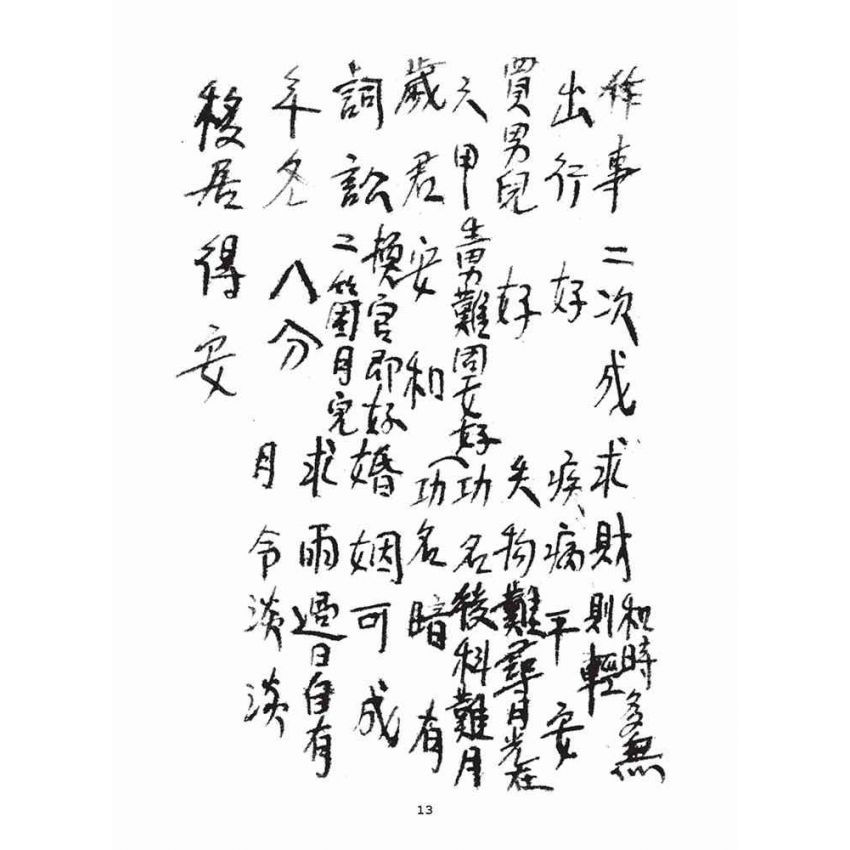 作事 二次成 求財 和時多無 則輕
出行 好 疾病 平安
買男兒 好 失物 難尋月光在
六甲 生男難周女好 功名 後科難月
歲君 安和 功名 暗有
詞訟 換官即好 二箇月完 婚姻 可成
年冬 八分 求雨 過日自有
移居得安 月令 淡淡
13